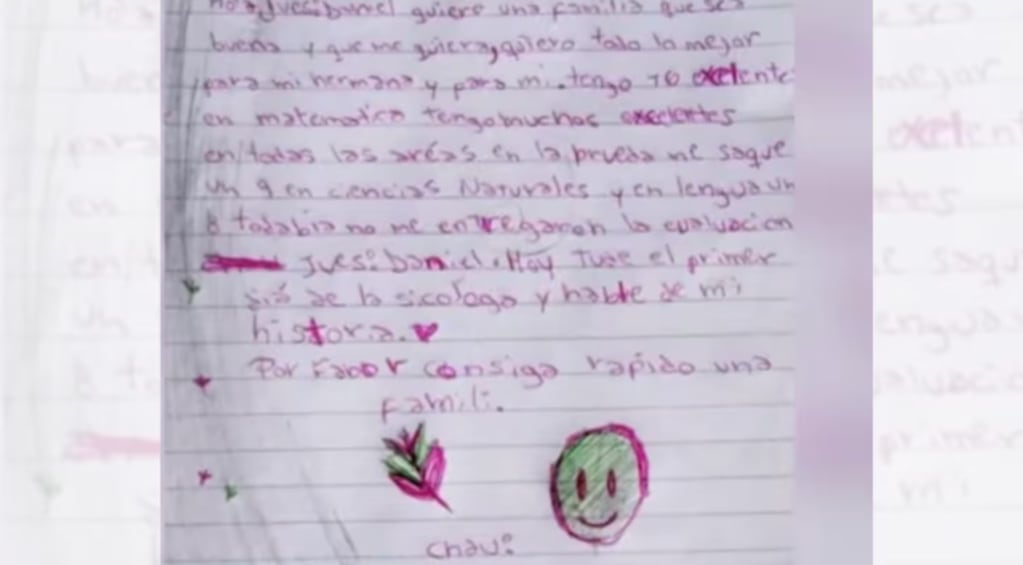 Juez: Daniel quiere una familia que sea
buena y que me quiera, quiero todo lo mejor
para mi hermano y para mi. tengo 10 exelente
en matematica tengo muchos execlentes
en todas las areas en la prueba me saque
un 9 en ciencias Naturales y en lengua un
8 todabia no me entregaron la evaluacion
Jues: Daniel. Hoy Tuve el primer
dia de la sicologa y hable de mi
historia.
Por Fabor consiga rapido una
famili.
chau: